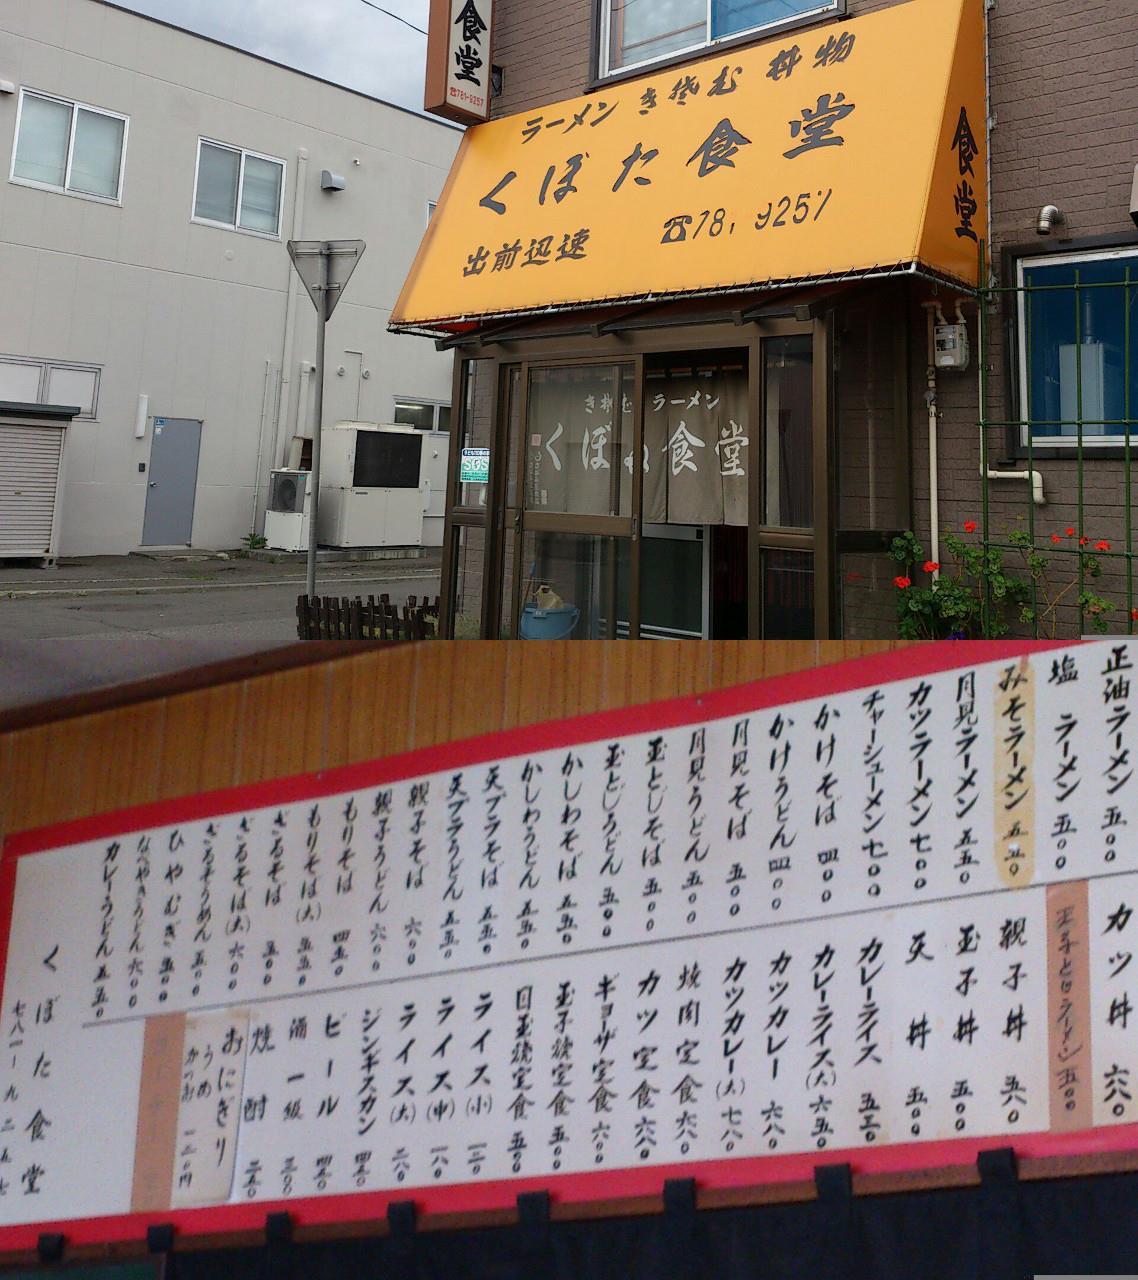 食堂
☎781-9257
ラーメン きそば 丼物
くぼた食堂
出前迅速
☎781,9257
食堂
きそば ラーメン
くぼた食堂
SOS
正油ラーメン 五〇〇
塩 ラーメン 五〇〇
みそラーメン 五五〇
月見ラーメン 五五〇
カツラーメン 七〇〇
チャーシューメン 七〇〇
かけそば 四〇〇
かけうどん 四〇〇
月見そば 五〇〇
月見うどん 五〇〇
玉とじそば 五〇〇
玉とじうどん 五〇〇
かしわそば 五五〇
かしわうどん 五五〇
天プラそば 五五〇
天プラうどん 五五〇
親子そば 六〇〇
親子うどん 六〇〇
もりそば 四五〇
もりそば(大) 五五〇
ざるそば 五〇〇
ざるそば(大) 六〇〇
ざるそうめん 五〇〇
ひやむぎ 五〇〇
なべやきうどん 六〇〇
カレーうどん 五五〇
カツ丼 六八〇
玉子とじラーメン 五〇〇
親子丼 五八〇
玉子丼 五〇〇
天丼 五〇〇
カレーライス 五三〇
カレーライス(大) 六五〇
カツカレー 六八〇
カツカレー(大) 七八〇
焼肉定食 六八〇
カツ定食 六八〇
ギョーザ定食 六〇〇
玉子焼定食 五〇〇
目玉焼定食 五〇〇
ライス(小) 一二〇
ライス(中) 一八〇
ライス(大) 二八〇
ジンギスカン 四五〇
ビール 四五〇
酒一級 三〇〇
焼酎 二五〇
おにぎり
うめ
かつお 一二〇円
くぼた食堂
七八一-九二五七